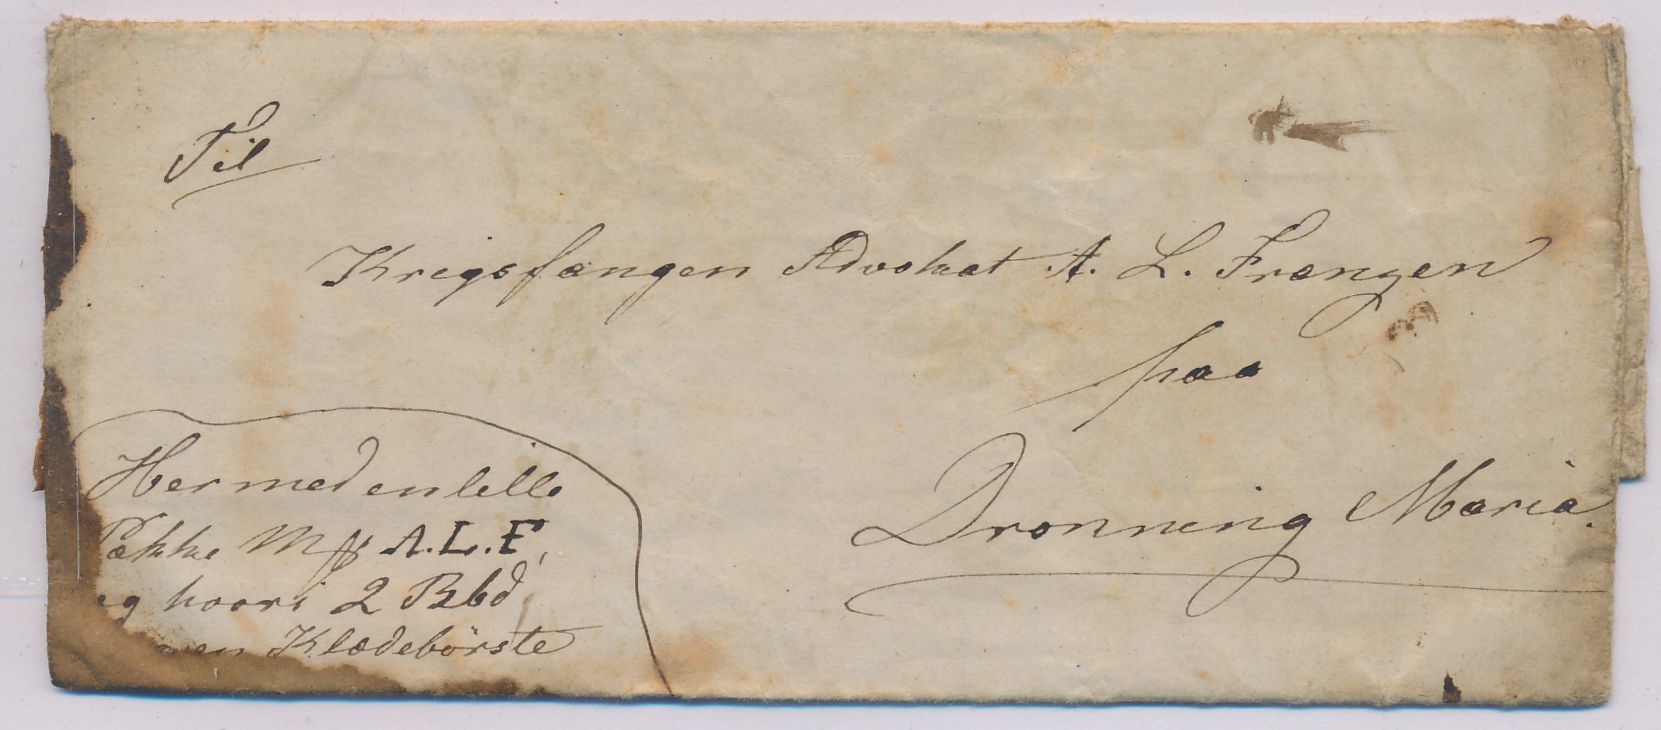 Til
Krigsfangen Advokat A. L. Franzen
paa
Dronning Maria.
Hermed en lille
Pakke A.L.F,
og hvori 2 Rbd
Klædebörste